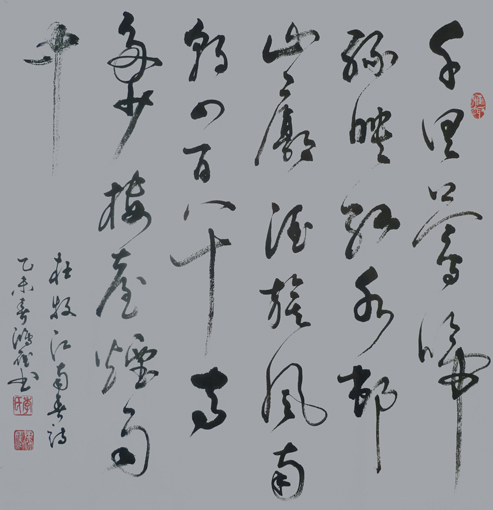 千里鶯啼
綠映紅水邨
山郭酒旗風南
朝四百八十寺
多少樓臺煙雨
中
杜牧江南春詩
乙未春鴻書